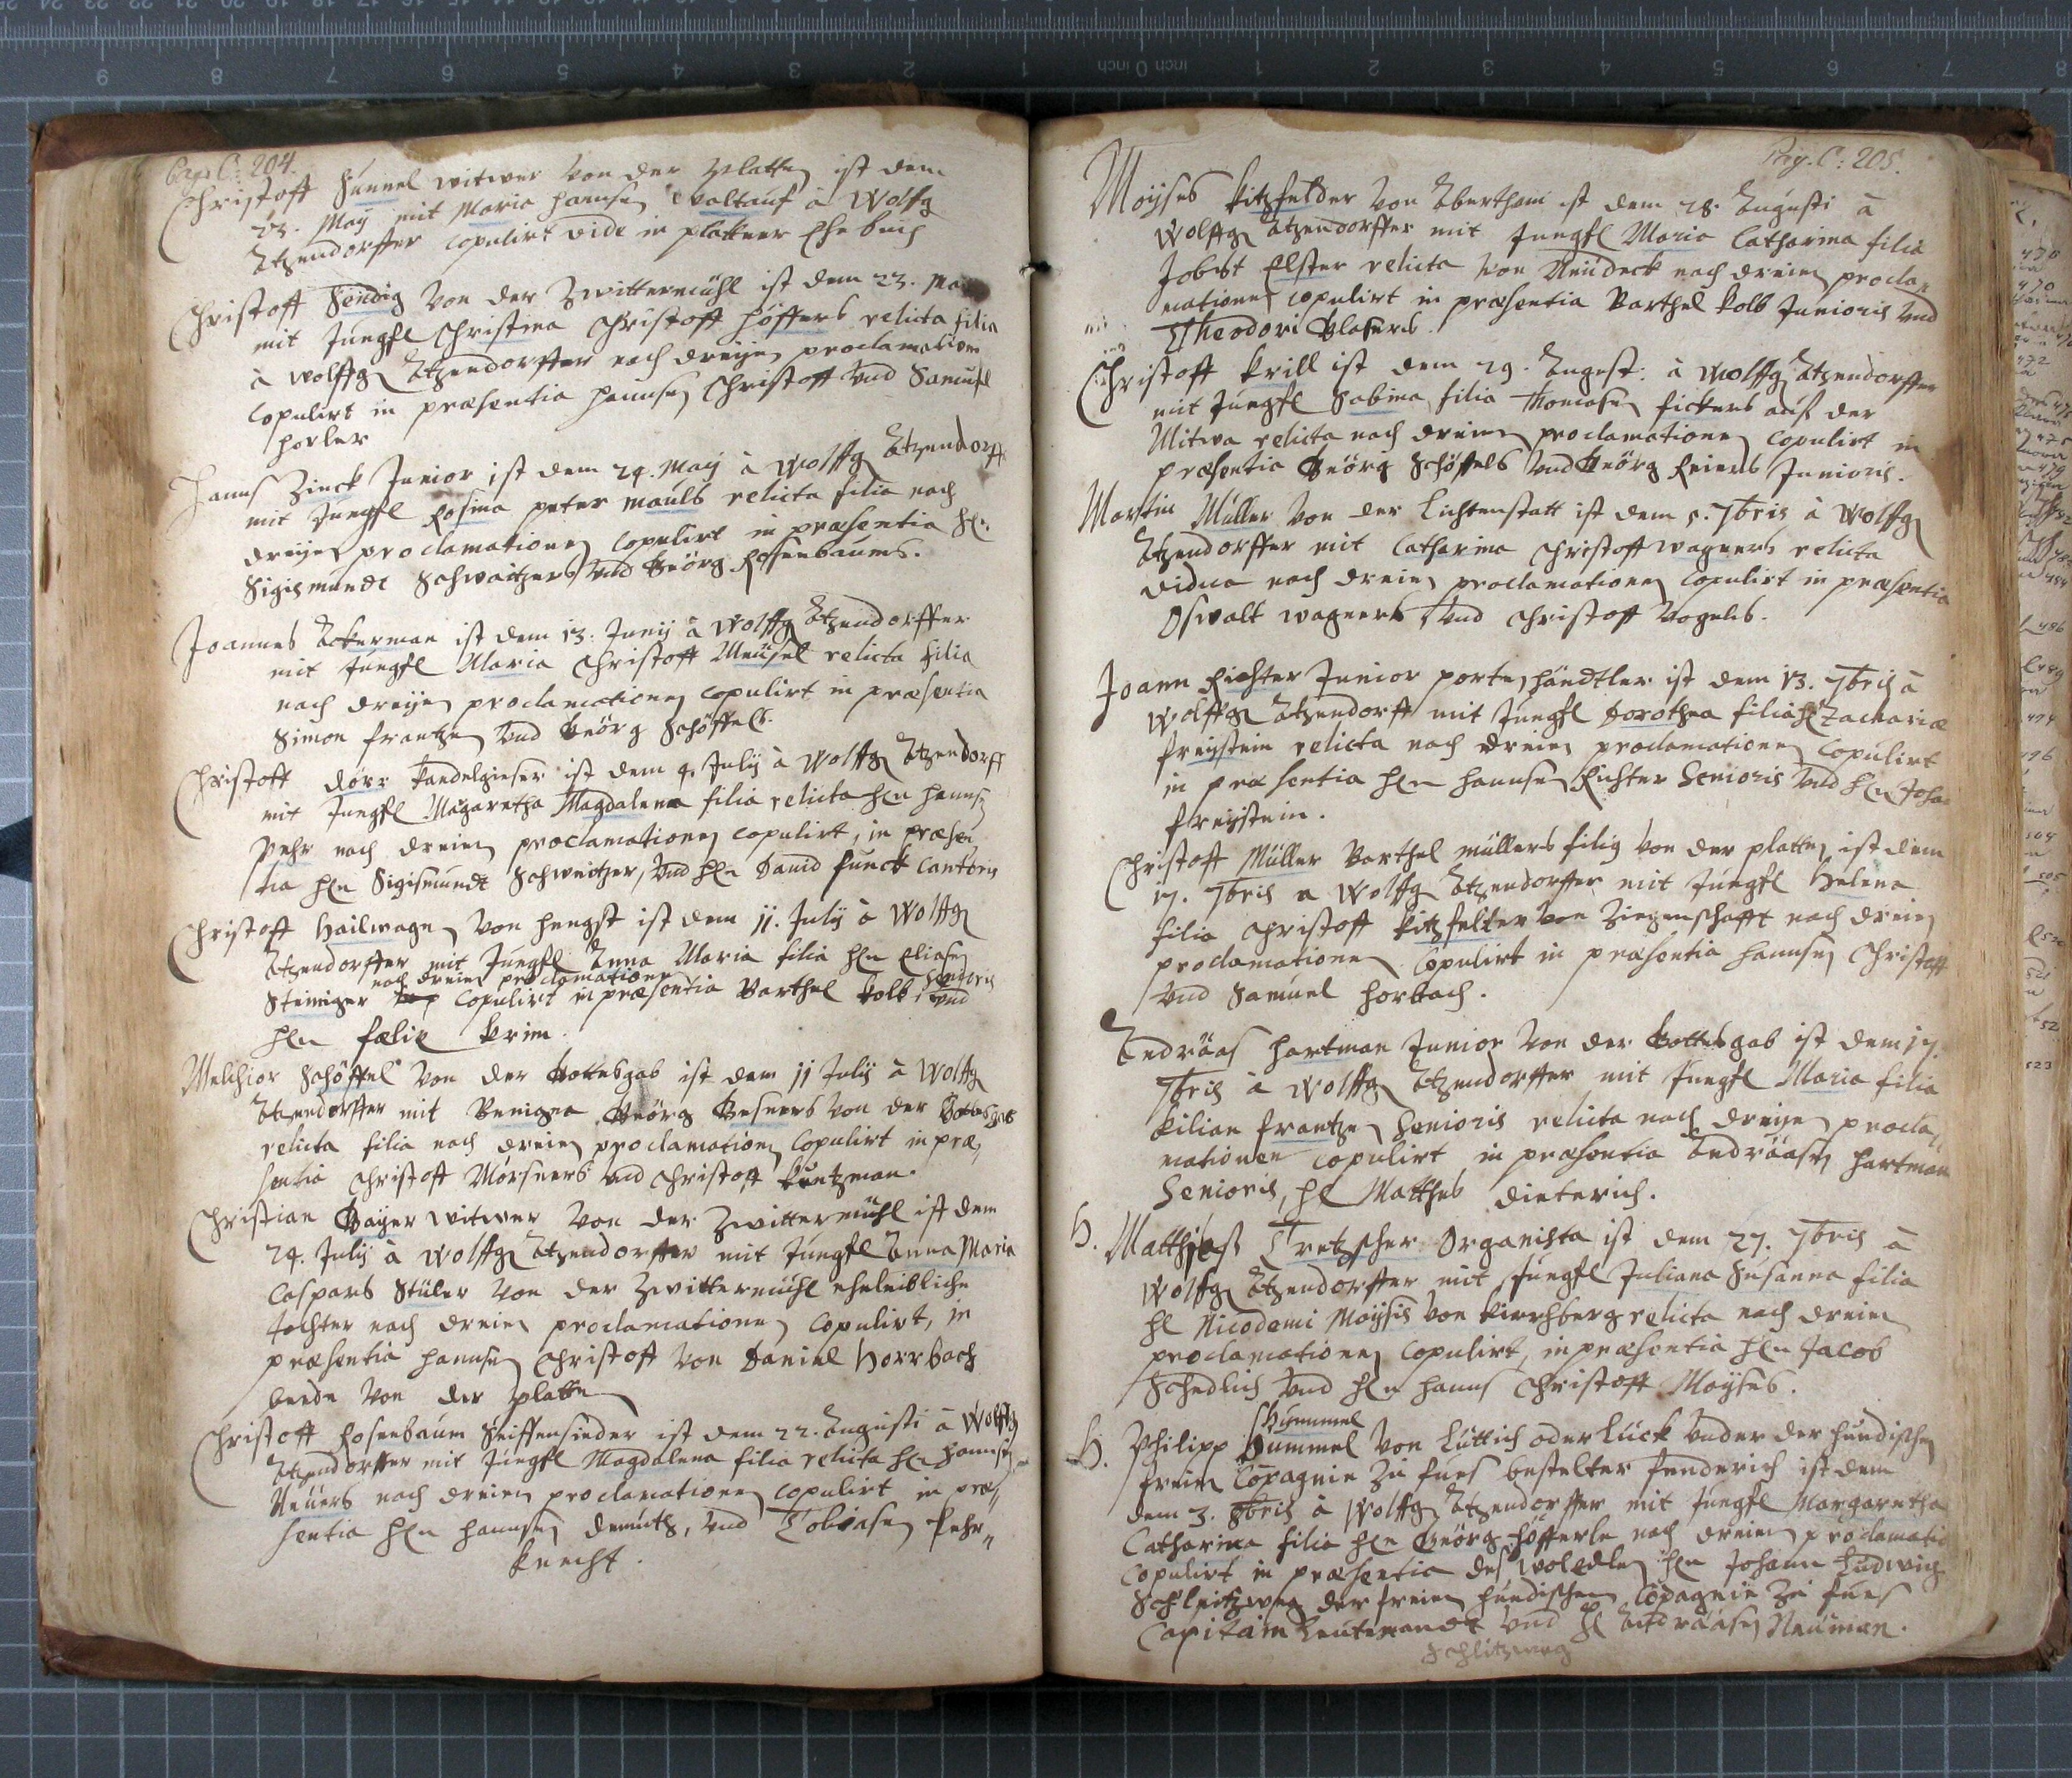 Pag. C: 204.
Christoff Hünnel witwer von der Platten ist den
23. Maÿ mit Maria Hannsen Waltauf à Wolffg
Atzendorffer Copulirt vide in plattner Ehebuch
Christoff Sendig von der Zwittermühl ist den 23. Maÿ
mit Jungfl Christina Christoff Höffers relicta filia
à Wolffg Atzendorffer nach dreÿen proclamationen
Copulirt in præsentia Hannsen Christoff vnd Samuel
Horler
Hanns Zinck Junior ist den 24. Maÿ à Wolffg Atzendorff
mit Jungfl Rosina peter Mauls relicta filia nach
dreÿen proclamationen Copulirt in præsentia Hln
Sigismundt Schwaitzers vnd Geörg Rosenbaums.
Joannes Ackerman ist den 13. Junÿ à Wolffg Atzendorffer
mit Jungfl Maria Christoff Meüsel relicta filia
nach dreÿen proclamationen Copulirt in præsentia
Simon frantzen vnd Geörg Schöffels.
Christoff Dörr Kandelgieser ist den 4. Julÿ à Wolffg Atzendorff
mit Jungfl Magaretha Magdalena filia relicta Hln Hannsen
Pehr nach dreien proclamationen Copulirt, in præsen
tia Hln Sigismundt Schweitzer, vnd Hln David Funck Cantoris
Christoff Hailwagen von Hengst ist den 11. Julÿ à Wolffg
Atzendorffer mit Jungfl Anna Maria filia Hln Eliasen
nach dreien proclamationen
Steiniger Copulirt in præsentia Barthel Kolb, Senioris vnd
Hln fælix Krim.
Melchior Schöffel von der Gottesgab ist den 11 Julÿ à Wolffg
Atzendorffer mit Benigna Geörg Gesners von der Gottesgab
relicta filia nach dreien proclamationen Copulirt in præ,
sentia Christoff Mörsners vnd Christoff Kuntzman.
Christian Baÿer witwer von der Zwittermühl ist den
24. Julÿ à Wolffg Atzendorffer mit Jungfl Anna Maria
Caspars Stüler von der Zwittermühl eheleibliche
tochter nach dreien proclamationen Copulirt, in
præsentia Hannsen Christoff von Daniel Horrbach
beede von der Platten
Christoff Rosenbaum Seiffensieder ist den 22. Augusti à Wolffg
Atzendorffer mit Jungfl Magdalena filia relicta Hln Hannsen
Neüers nach dreien proclamationen Copulirt in præ,,
sentia Hln Hannsen Demuth, vnd Tobiasen Pehr,,
knecht.
Pag. C: 205.
Moÿses Kitzfelder von Abertham ist den 28. Augusti à
Wolffg Atzendorffer mit Jungfl Maria Catharina filia
Jobst Elster relicta von Neüdeck nach dreien procla,,
mationen Copulirt in præsentia Barthel Kolb Junioris vnd
Theodori Glasers.
Christoff Krill ist den 29. August. à Wolffg Atzendorffer
mit Jungfl Sabina filia Thomasen fickers auß der
Mitwa relicta nach dreien proclamationen Copulirt in
præsentia Geörg Schöffels vnd Geörg Reiers Junioris.
Martin Müller von der Lichtenstatt ist den 5. 7bris à Wolffg
Atzendorffer mit Catharina Christoff wagners relicta
vidua nach dreien proclamationen Copulirt in præsentia
Oswalt wagners vnd Christoff Vogels.
Joann Richter Junior porten händtler ist den 13. 7bris à
Wolffg Atzendorff mit Jungfl Dorothea filia Hl Zachariæ
freÿstein relicta nach dreien proclamationen Copulirt
in præsentia Hln Hannsen Richter Senioris vnd Hln Johan
freÿstein.
Christoff Müller Barthel müllers filiq von der platten ist den
17. 7bris a Wolffg Atzendorffer mit Jungfl Helena
filia Christoff Kitzfelder von Ziegenschafft nach dreien
proclamationen Copulirt in præsentia Hannsen Christoff
vnd Samuel Horbach.
Andräas Hartman Junior von der Gottesgab ist den 17.
7bris à Wolffg Atzendorffer mit Jungfl Maria filia
Kilian frantzen Senioris relicta nach dreÿen procla,,
mationen Copulirt in præsentia Andräasen Hartman
Senioris, Hl Matthes Dieterich.
H. Matthiass Tretzscher Organista ist den 27. 7bris à
Wolffg Atzendorffer mit Jungfl Juliana Susanna filia
Hl Nicodemi Moÿsis von Kirchberg relicta nach dreien
proclamationen Copulirt, in præsentia Hln Jacob
Schedlich vnd Hln Hanns Christoff Moÿses.
Hummel
H. Philipp Hummel von Lüttich oder Lück vnder der Hundischen
freien Copagnie zu fues bestelter fenderich ist dem
dem 3. 8bris à Wolffg Atzendorffer mit Jungfl Margaretha
Catharina filia Hln Geörg Höfferle nach dreien proclamatio
Copulirt in præsentia des woledlen Hln Johann Ludwig
Schleitzweg der freien Hundischen Copagnie zu fues
Capitain Leutenandt vnd Hl Andräasen Neüman.
Schlitzweg